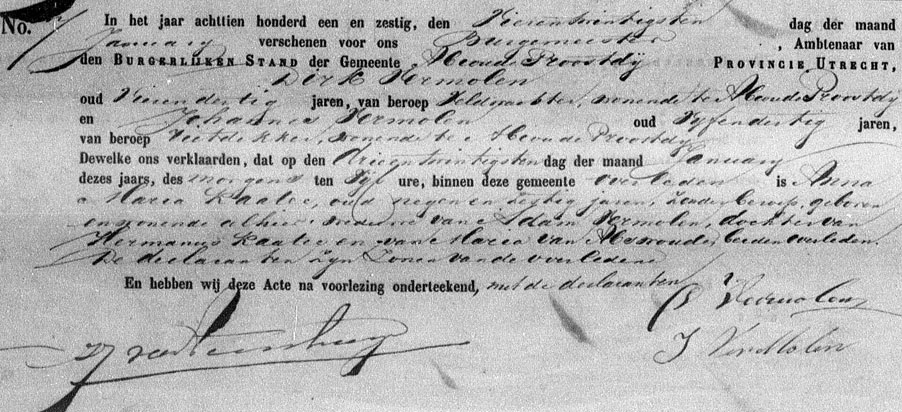 No. 7 In het jaar achttien honderd een en zestig, den Vierentwintigsten dag der maand
January verschenen voor ons Burgemeester, Ambtenaar van
den BURGERLIJKEN STAND der Gemeente Abcoude Proostdÿ PROVINCIE UTRECHT,
Dirk Vermolen
oud Vierendertig jaren, van beroep Veldwachter, wonende te Abcoude Proostdÿ
en Johannes Vermolen oud Vyfendertig jaren,
van beroep Rietdekker, wonende te Abcoude Proostdÿ
Dewelke ons verklaarden, dat op den drieentwintigsten dag der maand January
dezes jaars, des morgens ten Vyf ure, binnen deze gemeente overleden is Anna
Maria Kaalee, oud negen en zestig jaren, zonder beroep, geboren
en wonende alhier weduwe van Adam Vermolen, dochter van
Hermanus Kaalee en van Maria van beiden overleden.
De declaranten zyn Zonen van de overledene
En hebben wij deze Acte na voorlezing onderteekend, met de declaranten
D Vermolen
J VerMolen